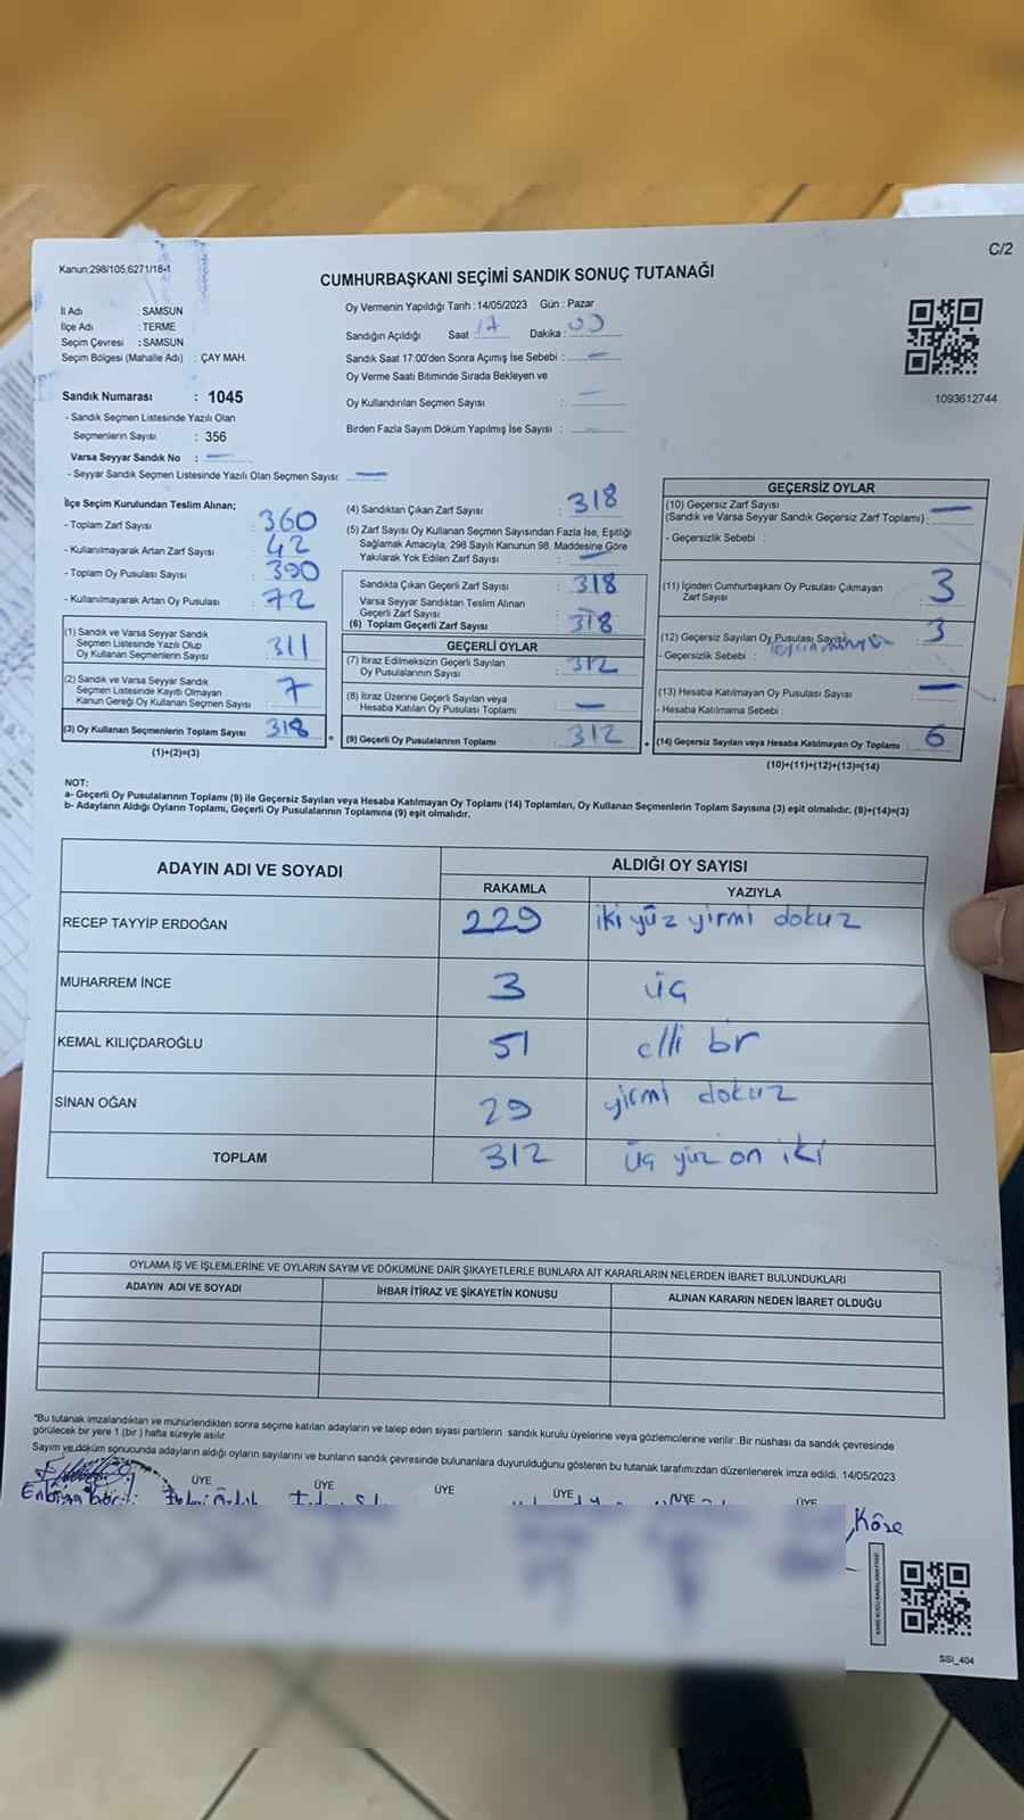 C/2
Kanun:298/105,6271/18-1
CUMHURBAŞKANI SEÇİMİ SANDIK SONUÇ TUTANAĞI
İl Adı : SAMSUN
İlçe Adı : TERME
Seçim Çevresi : SAMSUN
Seçim Bölgesi (Mahalle Adı) : ÇAY MAH.
Oy Vermenin Yapıldığı Tarih : 14/05/2023 Gün : Pazar
Sandığın Açıldığı Saat 17 Dakika : 00
Sandık Saat 17:00'den Sonra Açımış İse Sebebi : —
Oy Verme Saati Bitiminde Sırada Bekleyen ve
Oy Kullandırılan Seçmen Sayısı : —
Birden Fazla Sayım Döküm Yapılmış İse Sayısı : —
1093612744
Sandık Numarası : 1045
- Sandık Seçmen Listesinde Yazılı Olan
Seçmenlerin Sayısı : 356
Varsa Seyyar Sandık No : —
- Seyyar Sandık Seçmen Listesinde Yazılı Olan Seçmen Sayısı: —
İlçe Seçim Kurulundan Teslim Alınan;
- Toplam Zarf Sayısı : 360
- Kullanılmayarak Artan Zarf Sayısı : 42
- Toplam Oy Pusulası Sayısı : 390
- Kullanılmayarak Artan Oy Pusulası : 72
(1) Sandık ve Varsa Seyyar Sandık
Seçmen Listesinde Yazılı Olup
Oy Kullanan Seçmenlerin Sayısı : 311
(2) Sandık ve Varsa Seyyar Sandık
Seçmen Listesinde Kayıtlı Olmayan
Kanun Gereği Oy Kullanan Seçmen Sayısı : 7
(3) Oy Kullanan Seçmenlerin Toplam Sayısı : 318
(1)+(2)=(3)
(4) Sandıktan Çıkan Zarf Sayısı : 318
(5) Zarf Sayısı Oy Kullanan Seçmen Sayısından Fazla İse, Eşitliği
Sağlamak Amacıyla, 298 Sayılı Kanunun 98. Maddesine Göre
Yakılarak Yok Edilen Zarf Sayısı : —
Sandıkta Çıkan Geçerli Zarf Sayısı : 318
Varsa Seyyar Sandıktan Teslim Alınan
Geçerli Zarf Sayısı :
(6) Toplam Geçerli Zarf Sayısı : 318
GEÇERLİ OYLAR
(7) İtiraz Edilmeksizin Geçerli Sayılan
Oy Pusulalarının Sayısı : 312
(8) İtiraz Üzerine Geçerli Sayılan veya
Hesaba Katılan Oy Pusulası Toplamı : —
= (9) Geçerli Oy Pusulalarının Toplamı : 312
GEÇERSİZ OYLAR
(10) Geçersiz Zarf Sayısı
(Sandık ve Varsa Seyyar Sandık Geçersiz Zarf Toplamı) : —
- Geçersizlik Sebebi :
(11) İçinden Cumhurbaşkanı Oy Pusulası Çıkmayan
Zarf Sayısı : 3
(12) Geçersiz Sayılan Oy Pusulası Sayısı : 3
- Geçersizlik Sebebi :
(13) Hesaba Katılmayan Oy Pusulası Sayısı : —
- Hesaba Katılmama Sebebi :
+ (14) Geçersiz Sayılan veya Hesaba Katılmayan Oy Toplamı : 6
(10)+(11)+(12)+(13)=(14)
NOT:
a- Geçerli Oy Pusulalarının Toplamı (9) ile Geçersiz Sayılan veya Hesaba Katılmayan Oy Toplamı (14) Toplamları, Oy Kullanan Seçmenlerin Toplam Sayısına (3) eşit olmalıdır. (9)+(14)=(3)
b- Adayların Aldığı Oyların Toplamı, Geçerli Oy Pusulalarının Toplamına (9) eşit olmalıdır.
ADAYIN ADI VE SOYADI ALDIĞI OY SAYISI
RAKAMLA YAZIYLA
RECEP TAYYİP ERDOĞAN 229 iki yüz yirmi dokuz
MUHARREM İNCE 3 üç
KEMAL KILIÇDAROĞLU 51 elli bir
SİNAN OĞAN 29 yirmi dokuz
TOPLAM 312 üç yüz on iki
OYLAMA İŞ VE İŞLEMLERİNE VE OYLARIN SAYIM VE DÖKÜMÜNE DAİR ŞİKAYETLERLE BUNLARA AİT KARARLARIN NELERDEN İBARET BULUNDUKLARI
ADAYIN ADI VE SOYADI İHBAR İTİRAZ VE ŞİKAYETİN KONUSU ALINAN KARARIN NEDEN İBARET OLDUĞU
*Bu tutanak imzalandıktan ve mühürlendikten sonra seçime katılan adayların ve talep eden siyasi partilerin sandık kurulu üyelerine veya gözlemcilerine verilir. Bir nüshası da sandık çevresinde
görülecek bir yere 1 (bir) hafta süreyle asılır
Sayım ve döküm sonucunda adayların aldığı oyların sayılarını ve bunların sandık çevresinde bulunanlara duyurulduğunu gösteren bu tutanak tarafımızdan düzenlenerek imza edildi. 14/05/2023
ÜYE ÜYE ÜYE ÜYE ÜYE ÜYE
Köse
SSI_404